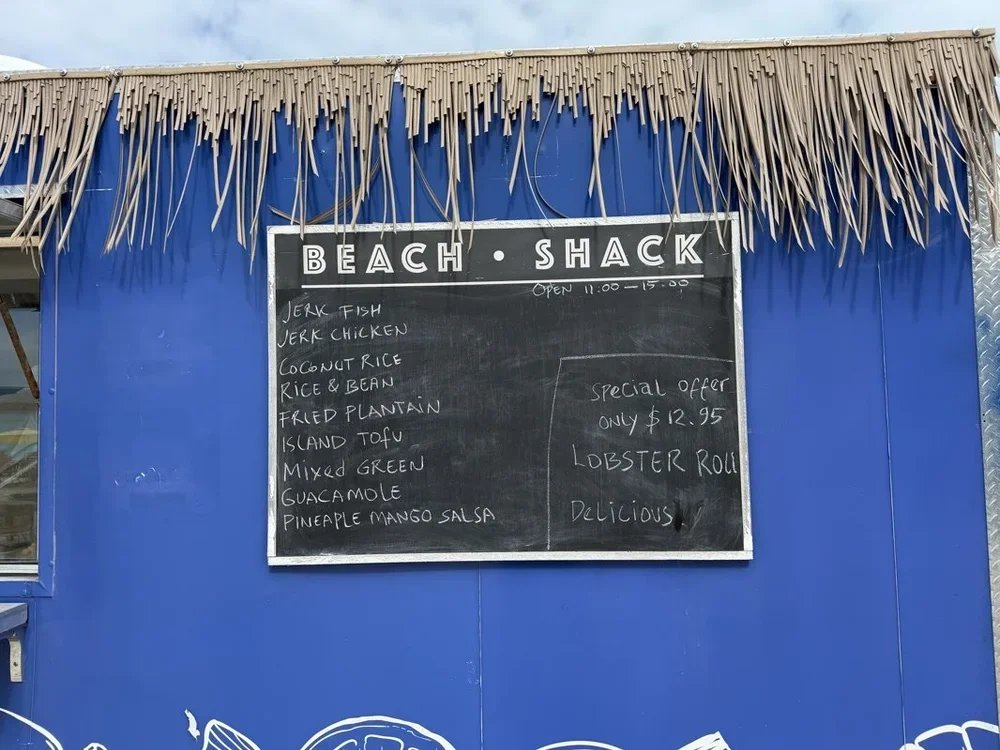 BEACH • SHACK
OPEN 11:00 — 15:00
JERK FISH
JERK CHICKEN
COCONUT RICE
RICE & BEAN
FRIED PLANTAIN
ISLAND TOFU
Mixed GREEN
GUACAMOLE
PINEAPPLE MANGO SALSA
Special offer
ONLY $ 12.95
LOBSTER ROLL
Delicious